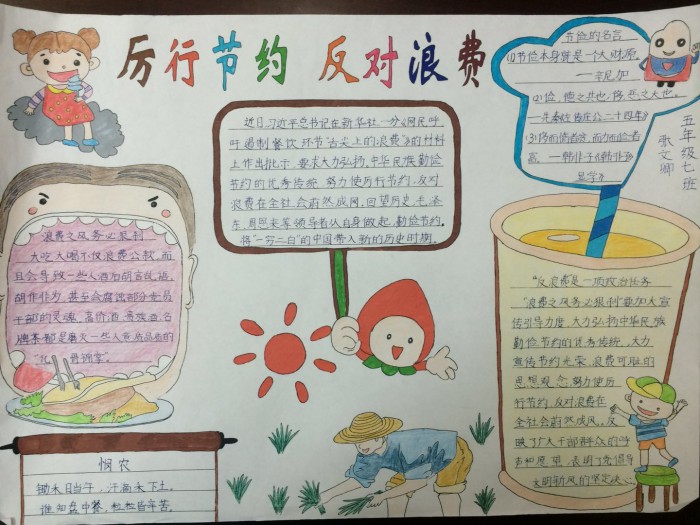 厉行节约 反对浪费
近日习近平总书记在新华社一份《网民呼
吁遏制餐饮环节"舌尖上的浪费"》的材料
上作出批示,要求大力弘扬中华民族勤俭
节约的优秀传统,努力使厉行节约,反对
浪费在全社会蔚然成风,回望历史,毛泽
东、周恩来等领导者从自身做起,勤俭节约,
将"一穷二白"的中国带入新的历史时期。
节俭的名言
(1)节俭本身就是一个大财原
——辛尼加
(2)俭,德之共也;侈,恶之大也。
(3)侈而惰者贫,而力而俭者
富。——韩非子《韩非子·
显学》
五年级七班
浪费之风务必狠刹
大吃大喝不仅浪费公款,而
且会导致一些人酒后胡言乱语,
胡作非为,甚至会腐蚀部分党员
干部的灵魂,高价酒,高烧烟,名
牌菜都是磨灭一些人意志品质的
"反浪费"是一项政治任务
"浪费之风务必狠刹"要加大宣
传引导力度,大力弘扬中华民族
勤俭节约的优秀传统,大力
宣传节约光荣,浪费可耻的
思想观念,努力使厉
行节约,反对浪费在
全社会蔚然成风。反
映了广大干部群众的呼
声和愿望,表明了党倡导
文明新风的坚定决心
悯农
锄禾日当午,汗滴禾下土。
谁知盘中餐,粒粒皆辛苦。